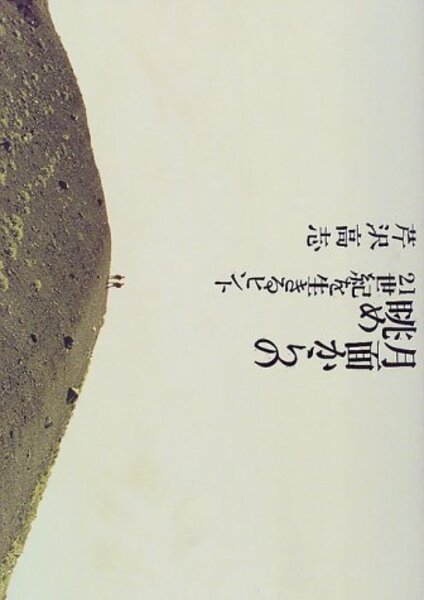 月面からの
眺め
21世紀を生きるヒント
芹沢高志